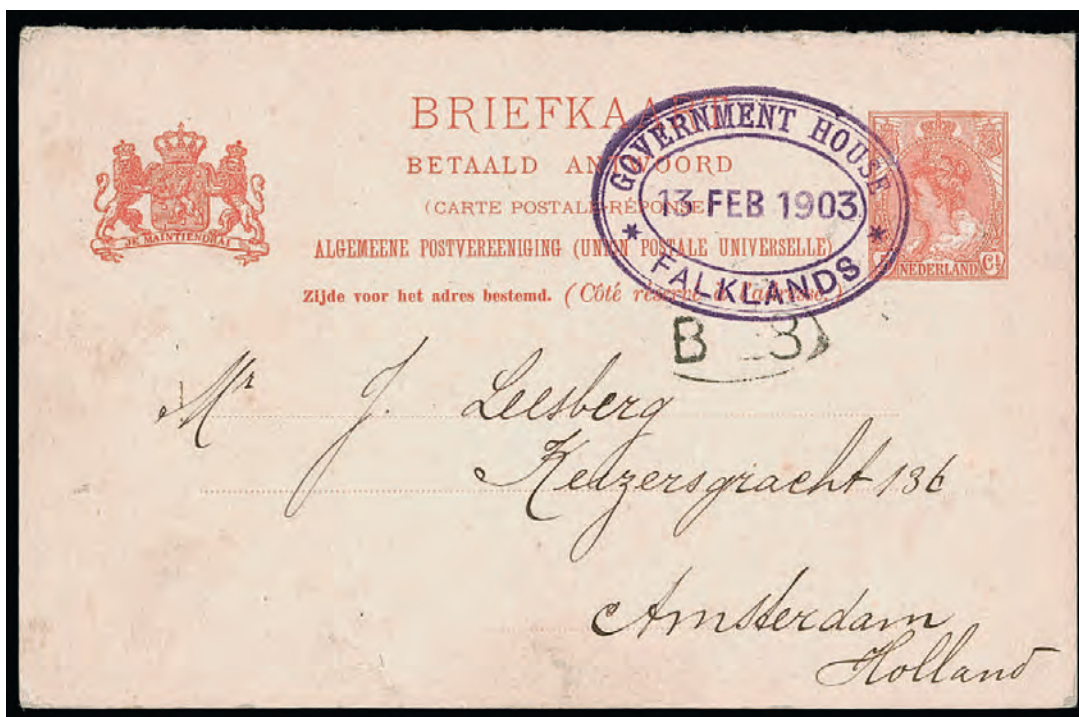 BRIEFKAART
BETAALD ANTWOORD
(CARTE POSTALE-RÉPONSE)
ALGEMEENE POSTVEREENIGING (UNION POSTALE UNIVERSELLE)
Zijde voor het adres bestemd. (Côté réservé à l'adresse.)
JE MAINTIENDRAI
GOVERNMENT HOUSE
13 FEB 1903
* FALKLANDS *
NEDERLAND Ct
B 3
Mr J. Leesberg
Keizersgracht 136
Amsterdam
Holland